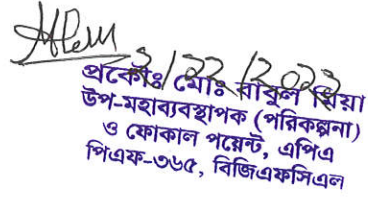 প্রকৌঃ মোঃ বাবুল মিয়া
উপ-মহাব্যবস্থাপক (পরিকল্পনা)
ও ফোকাল পয়েন্ট, এপিএ
পিএফ-৩৬৫, বিজিএফসিএল